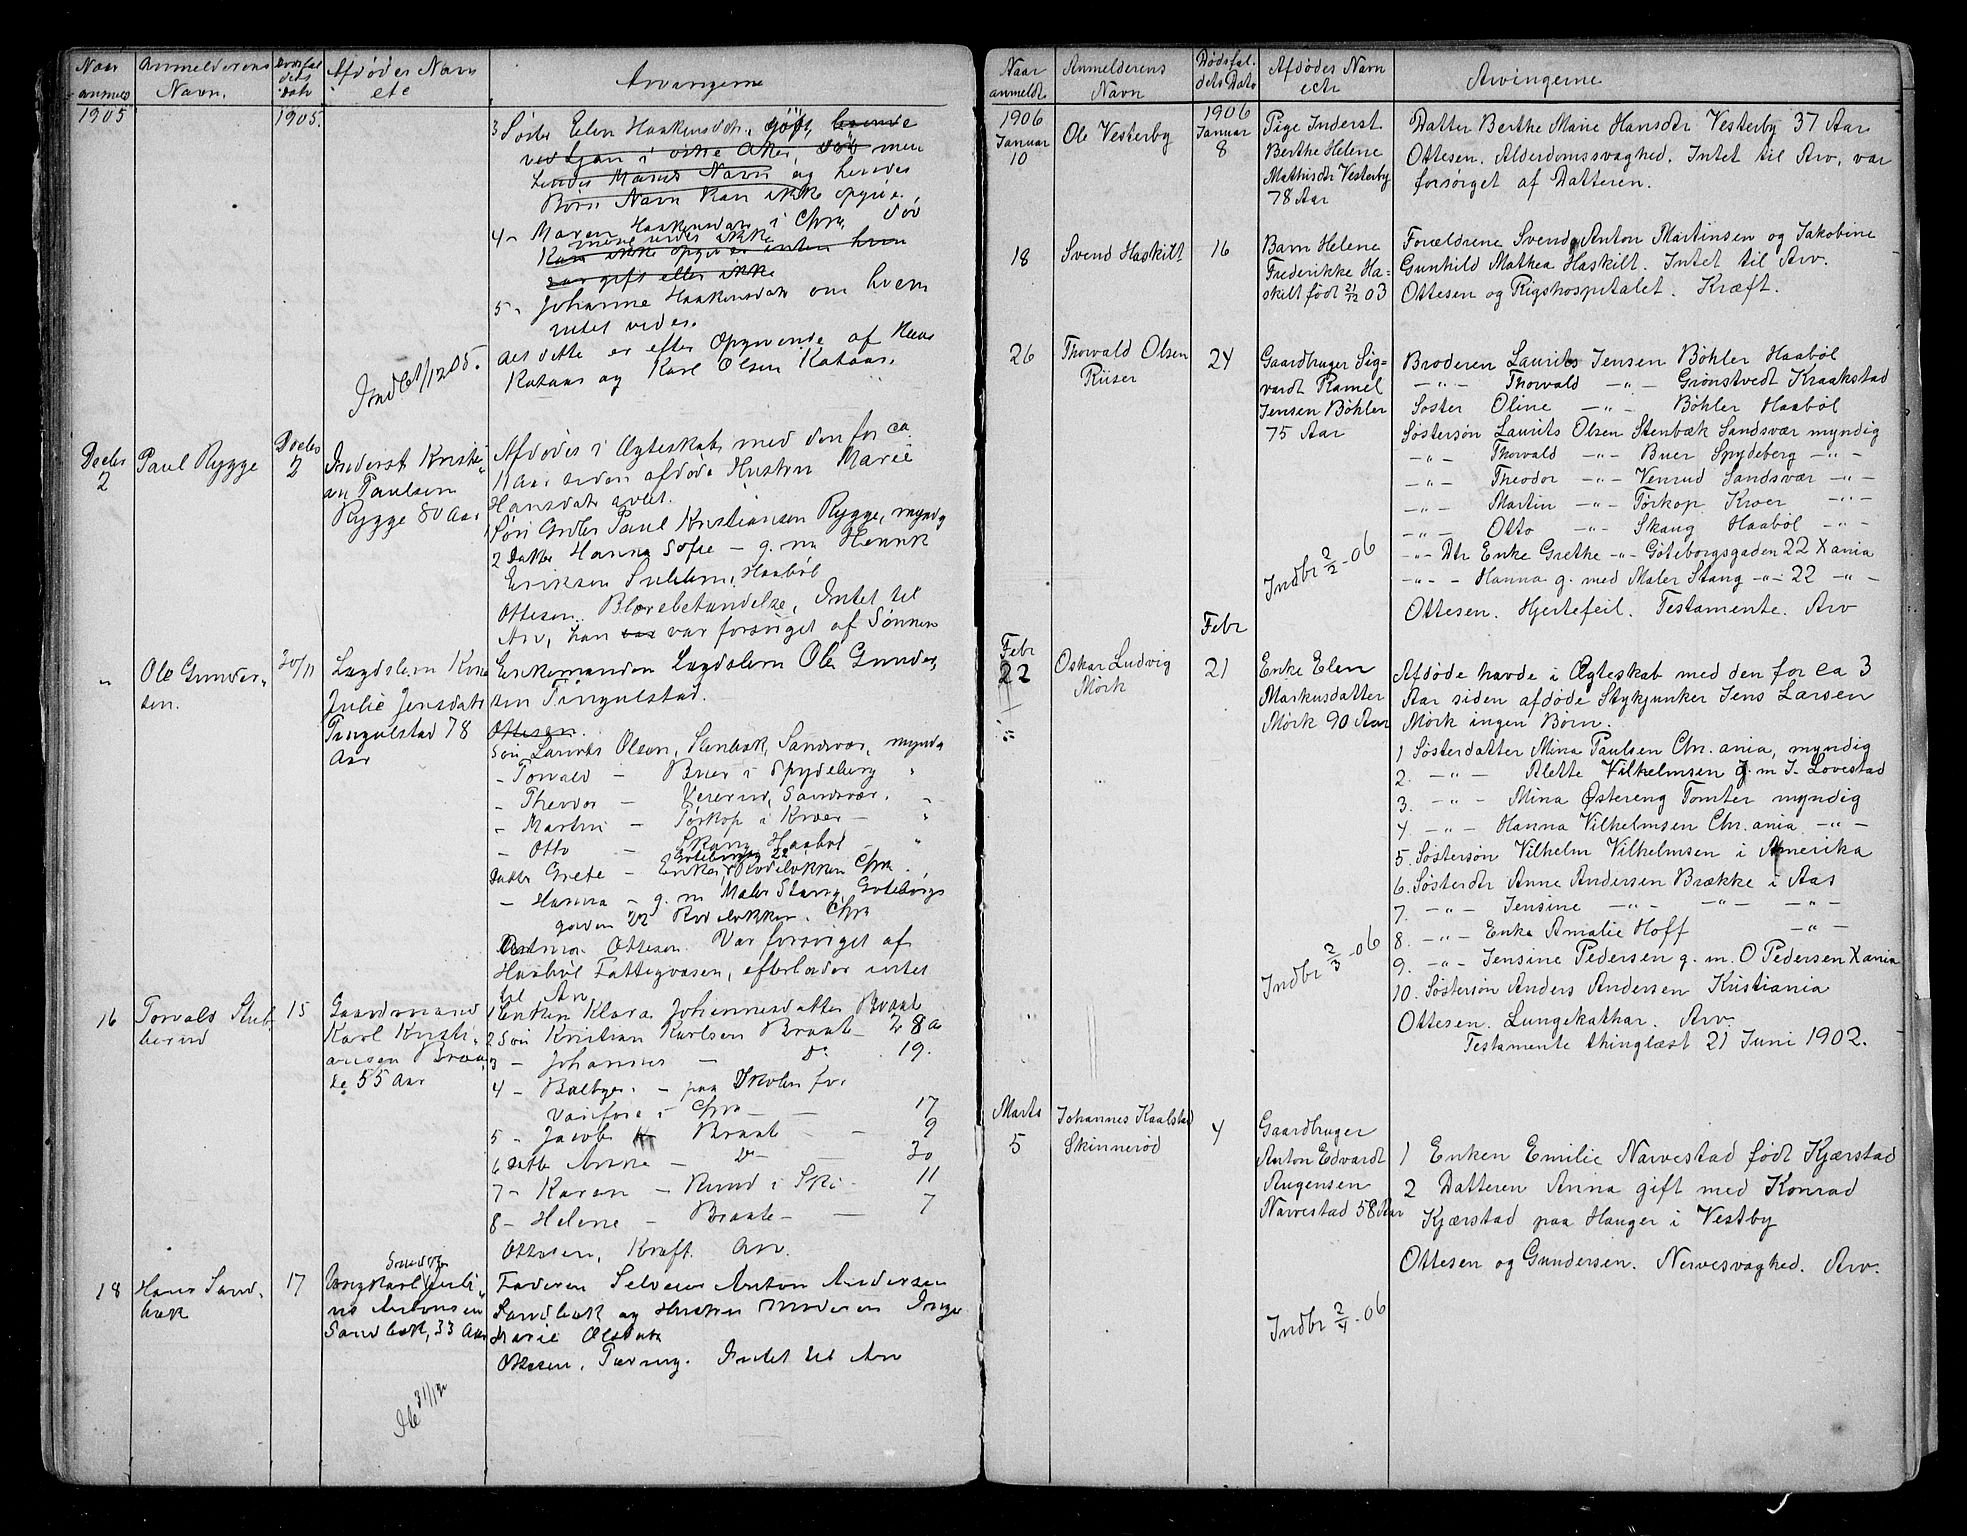 Naar
anmeldt
Anmelderens
Navn.
Dødsfal
dets
Dato
Afdødes Navn
etc
Arvingerne
1905
1905.
3 Søster Elen Haakensdatr. gift,
ved Ljan i østre Aker, død men
hendes Mands Navn og hendes
Børns Navn kan ikke opgives.
4 - Maren Haakensdatr i Chra, død
mere vides ikke
kan ikke opgives enten hun
var gift eller ikke
5 - Johanne Haakensdatr om hvem
intet vides.
Alt dette er efter Opgivende af
Kataas og Karl Olsen Kataas.
Decbr
2
Paul Rygge
Decbr
2
Inderst Kristi-
an Paulsen
Rygge 80 Aar
Afdødes i Ægteskab med den for ca
11 Aar siden afdøde Hustru Marie
Hansdatr avlet.
1 Søn Grdbr Paul Kristiansen Rygge, myndig
2 Datter Hanna Sofie - g. m Henrik
Eriksen Haabøl
Ottesen. Blærebetændelse, Intet til
Arv, han var forsørget af Sønnen
"
Ole Gunder-
sen.
30/11
Lægdslem Kone
Julie Jensdatr
Tingulstad 78
Aar
Enkemanden Lægdslem Ole Gunder-
sen Tingulstad.
Ottesen.
Søn Laurits Olsen, Stenbæk, Sandsvær, myndig
- Torvald - Buer i Spydeberg "
- Theodor - Venerud, Sandsvær. "
- Martin - Tørkop i Kroer - "
- Otto - Skaug Haabøl - "
Göteborgg 22
Datter Grete - Enke, Rodeløkken Chra.
- Hanna - g. m Maler Stang, Göteborgs
gaden 22 Rodeløkken. Chra
Ottesen. Var forsørget af
Haabøl Fattigvæsen, efterlader intet
til Arv
16
Torvald Stub-
berud
15
Gaardmand
Karl Kristi-
ansen Braa-
te 55 Aar
1 Enken Klara Johannesdatter Braate
2 Søn Kristian Karlsen Braate 28 a
3 - Johannes - Do 19.
4 - - paa Skolen for
Vanføre i Chra - - 17
5 - Jacob Braate - - 9
6 Datter Anna - Do 20
7 - Karen - i Ski - 11
8 - Helene - Braate - - 7
Ottesen, Kræft. Arv.
18
Hans Sand-
bæk
17
Ungkarl Juli-
us Antonsen
Sandbæk, 33 Aar
Faderen Selveier Anton Andersen
Sandbæk og Hustru Moderen Inge
Marie Olsdatr
Ottesen, Tæring. Intet til Arv
31/12
Naar
anmeldt
Anmelderens
Navn
Dødsfal.
dets Dato
Afdødes Navn
etc
Arvingerne
1906
Januar
10
Ole Vesterby
1906
Januar
8
Pige Inderst
Berthe Helene
Mathisdtr Vesterby
78 Aar
Datter Berthe Marie Hansdtr Vesterby 37 Aar
Ottesen. Alderdomssvaghed. Intet til Arv, var
forsørget af Datteren.
18
Svend Haskilt
16
Barn Helene
Frederikke Ha-
skilt født 21/12 03
Forældrene Svend Anton Martinsen og Jakobine
Gunhild Mathea Haskilt. Intet til Arv.
Ottesen og Rigshospitalet. Kræft.
26
Thorvald Olsen
Riiser
24
Gaardbruger Sig-
vardt Ramel
Jensen Bøhler
75 Aar
Broderen Laurits Jensen Bøhler Haabøl
- " - Thorvald - " - Grønstvedt Kraakstad
Søster Oline - " - Bøhler Haabøl
Søstersøn Laurits Olsen Stenbæk Sandsvær myndig
- " - Thorvald - " - Buer Spydeberg - " -
- " - Theodor - " - Venrud Sandsvær - " -
- " - Martin - " - Tørkop Kroer - " -
- " - Otto - " - Skaug Haabøl - " -
- " - Dtr Enke Grethe - " - Göteborgsgaden 22 Xania
- " - - Hanna g. med Maler Stang - " - 22 - " -
Ottesen. Hjertefeil. Testamente. Arv
Indbr 2/2 - 06
Febr
22
Oskar Ludvig
Mørk
Febr
21
Enke Elen
Markusdatter
Mørk 90 Aar
Afdøde havde i Ægteskab med den for ca 3
Aar siden afdøde Stykjunker Jens Larsen
Mørk ingen Børn.
1 Søsterdatter Mina Paulsen Chr.ania, myndig
2. - " - Alette Vilhelmsen g. m J. Lovestad
3. - " - Mina Østereng Tomter myndig
4. - " - Hanna Vilhelmsen Chr.ania - " -
5. Søstersøn Vilhelm Vilhelmsen i Amerika
6. Søsterdtr Anne Andersen Brække i Aas
7. - " - Jensine - " - - " - - " -
8. - " - Enke Amalie Hoff - " -
9. - " - Jensine Pedersen g. m. O Pedersen Xania
10. Søstersøn Anders Andersen Kristiania
Ottesen. Lungekathar. Arv.
Testamente thinglæst 21 Juni 1902.
Indbr 2/3 - 06
Marts
5
Johannes Kaalstad
Skinnerød
4
Gaardbruger
Anton Edvardt
Augensen
Narvestad 58 Aar
1 Enken Emilie Narvestad født Kjærstad
2 Datteren Anna gift med Konrad
Kjærstad paa Hauger i Vestby
Ottesen og Gundersen. Nervesvaghed. Arv.
Indbr 2/4 - 06